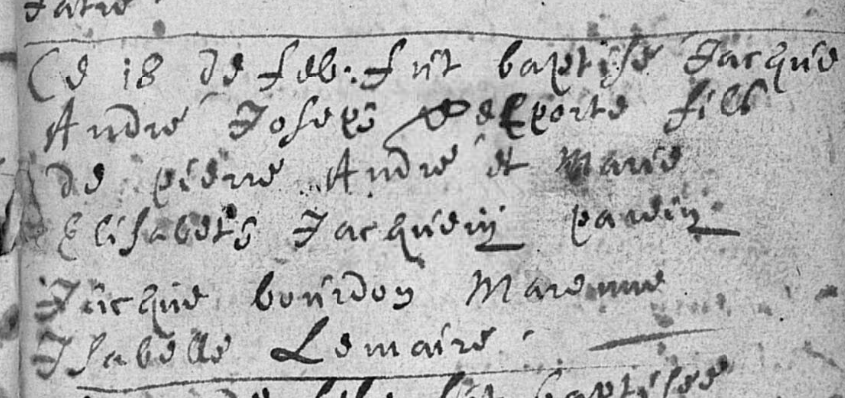 Ce 18 de feb. fut baptise Jacque
André Joseph Delporte fills
de pierre André et Marie
Elisabeth Jacquein parein
Jacque bourdon Marenne
Isabelle Lemaire
fut baptisee